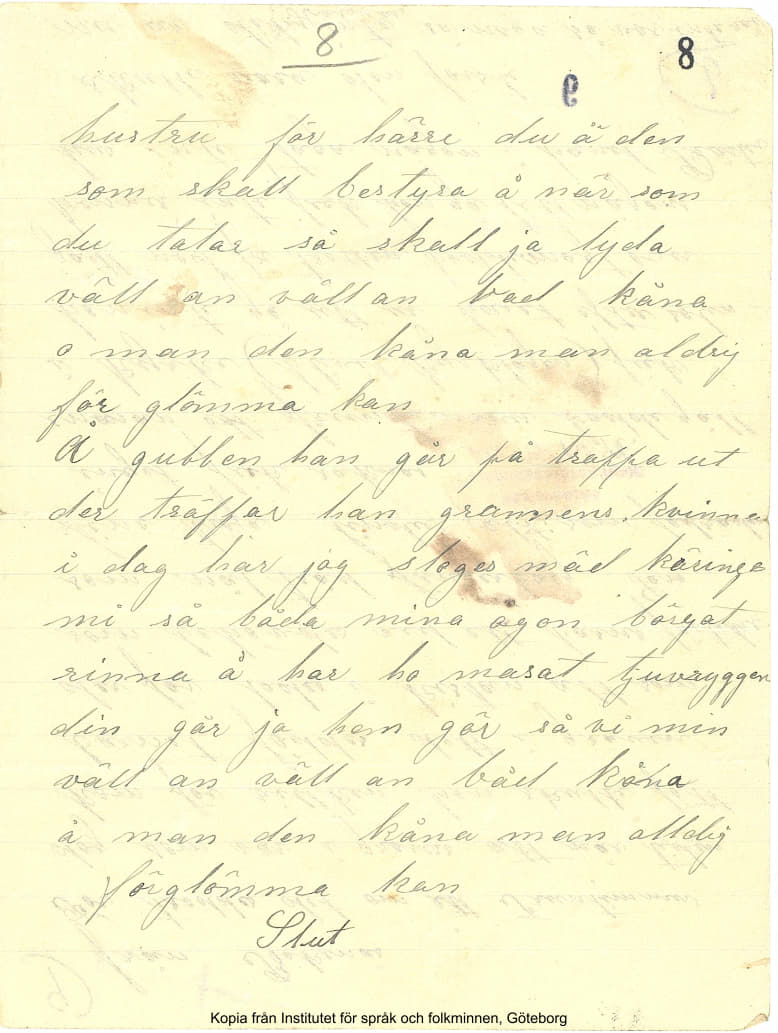 8
8
9
hustru för härre du ä den
som skall bestyra å när som
du talar så skall ja lyda
vält an vält an båd kåna
o man den kåna man aldrig
för glömma kan
Å gubben han går på trappa ut
der träffar han grannens kvinna
i dag har jag sloges mäd käringa
mi så båda mina ogon börgat
rinna å har ho masat tjuvryggen
din går ja hem gör så vi min
vält an vält an båd kåna
å man den kåna man alldig
förglömma kan
Slut
Kopia från Institutet för språk och folkminnen, Göteborg